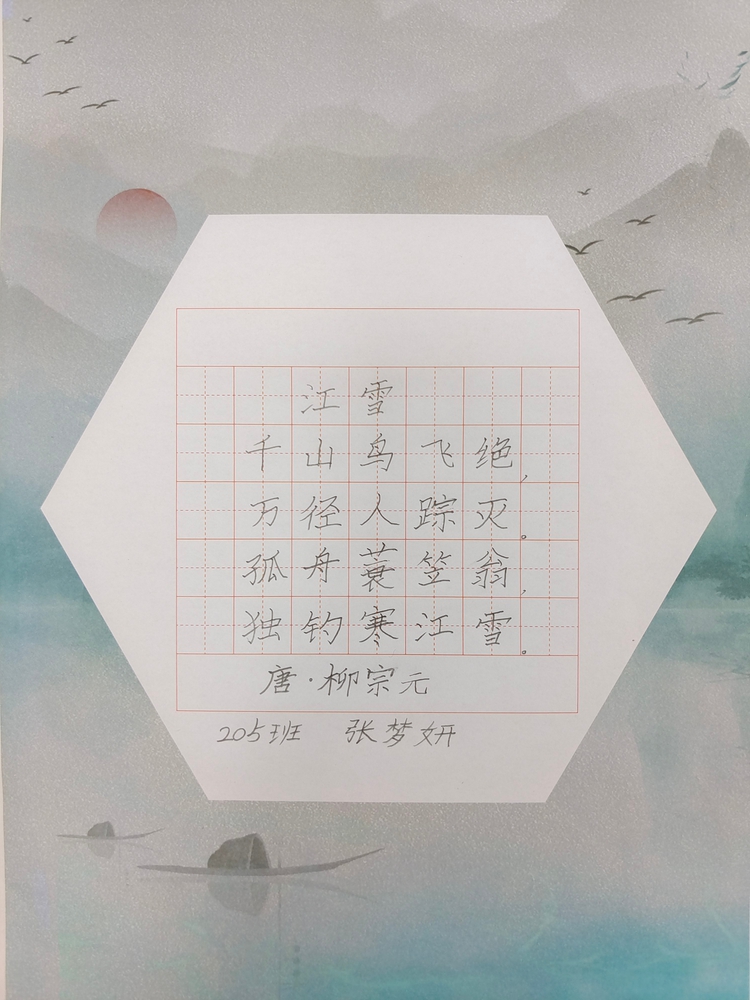 江雪
千山鸟飞绝，
万径人踪灭。
孤舟蓑笠翁，
独钓寒江雪。
唐·柳宗元
205班 张梦妍